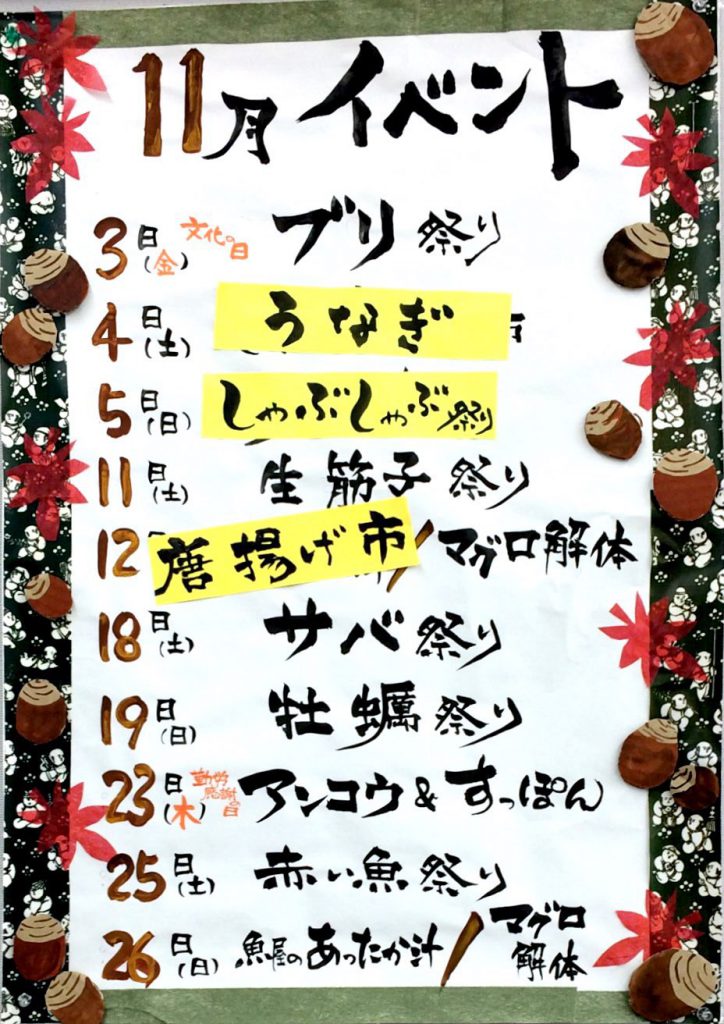 11月イベント
3日(金) 文化の日 ブリ祭り
4日(土) うなぎ
5日(日) しゃぶしゃぶ祭り
11日(土) 生筋子祭り
12 唐揚げ市/マグロ解体
18日(土) サバ祭り
19日(日) 牡蠣祭り
23日(木) 勤労感謝の日 アンコウ&すっぽん
25日(土) 赤い魚祭り
26日(日) 魚屋のあったか汁/マグロ解体